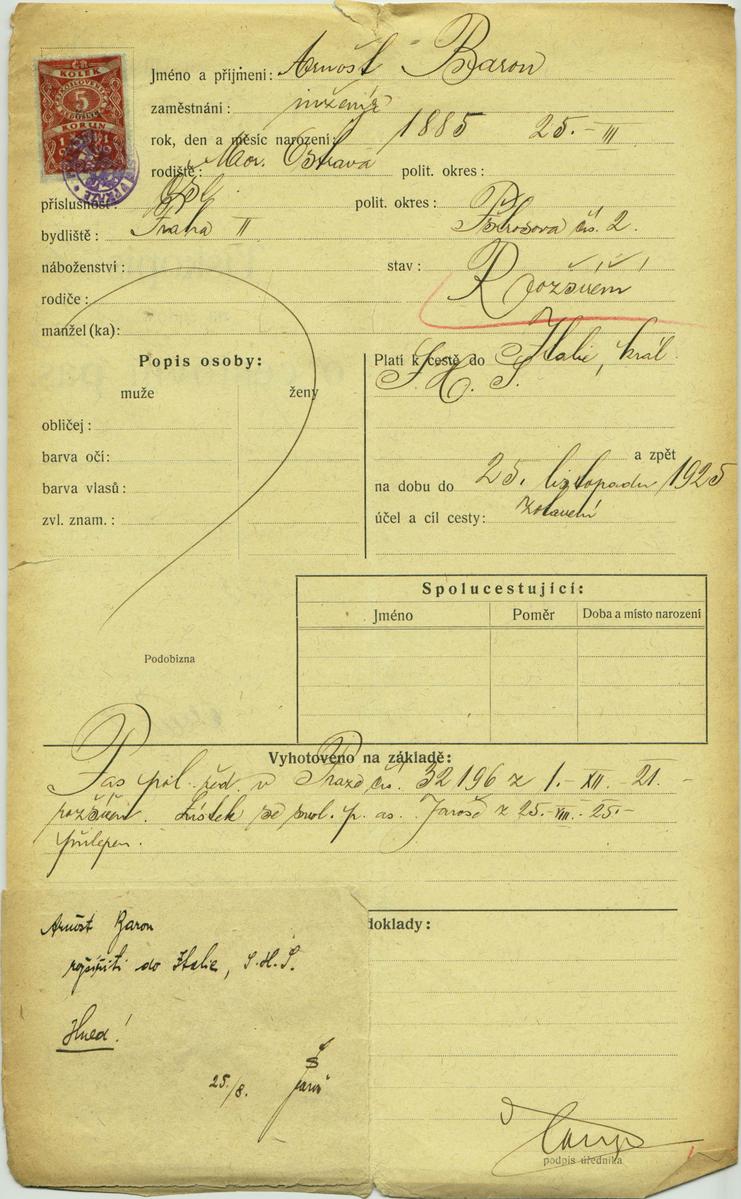 KOLEK
5
KORUN
Jméno a příjmení: Arnošt Baron
zaměstnání: inženýr
rok, den a měsíc narození: 1885 25.-III
rodiště: Mor. Ostrava polit. okres:
příslušnost: polit. okres:
bydliště: Praha II čís. 2.
náboženství: stav: Rozšíření
rodiče:
manžel(ka):
Popis osoby:
muže ženy
obličej:
barva očí:
barva vlasů:
zvl. znam.:
Platí k cestě do Italie, král.
S. H. S.
a zpět
na dobu do 25. listopadu 1925
účel a cíl cesty: zotavení
Spolucestující:
Jméno Poměr Doba a místo narození
Podobizna
Vyhotoveno na základě:
Pas pol. řed. v Praze čís. 32196 z 1.-XII.-21.-
rozšířen. Lístek se svol. p. as. Jaroše z 25.-VIII.-25.-
přilepen.
doklady:
Arnošt Baron
rozšířiti do Italie, S.H.S.
Hned!
25/8. Jaroš
podpis úředníka